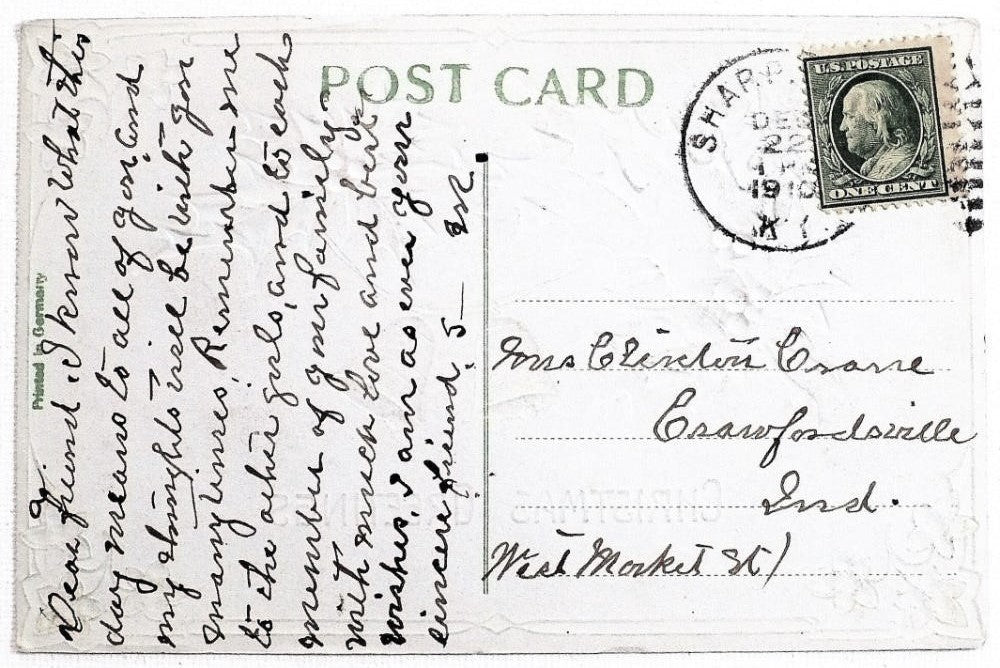 POST CARD
Printed in Germany
Dear friend. I know what this
day means to all of you, and
my thoughts will be with you
many times, Remember me
to the other girls, and to each
member of your family
With much love and best
wishes, I am as ever your
sincere friend, S— M.
SHARP
DEC
22
1910
KY.
U.S. POSTAGE
ONE CENT
Mrs Clinton Crane
Crawfordsville
Ind.
West Market St/
CHRISTMAS GREETINGS